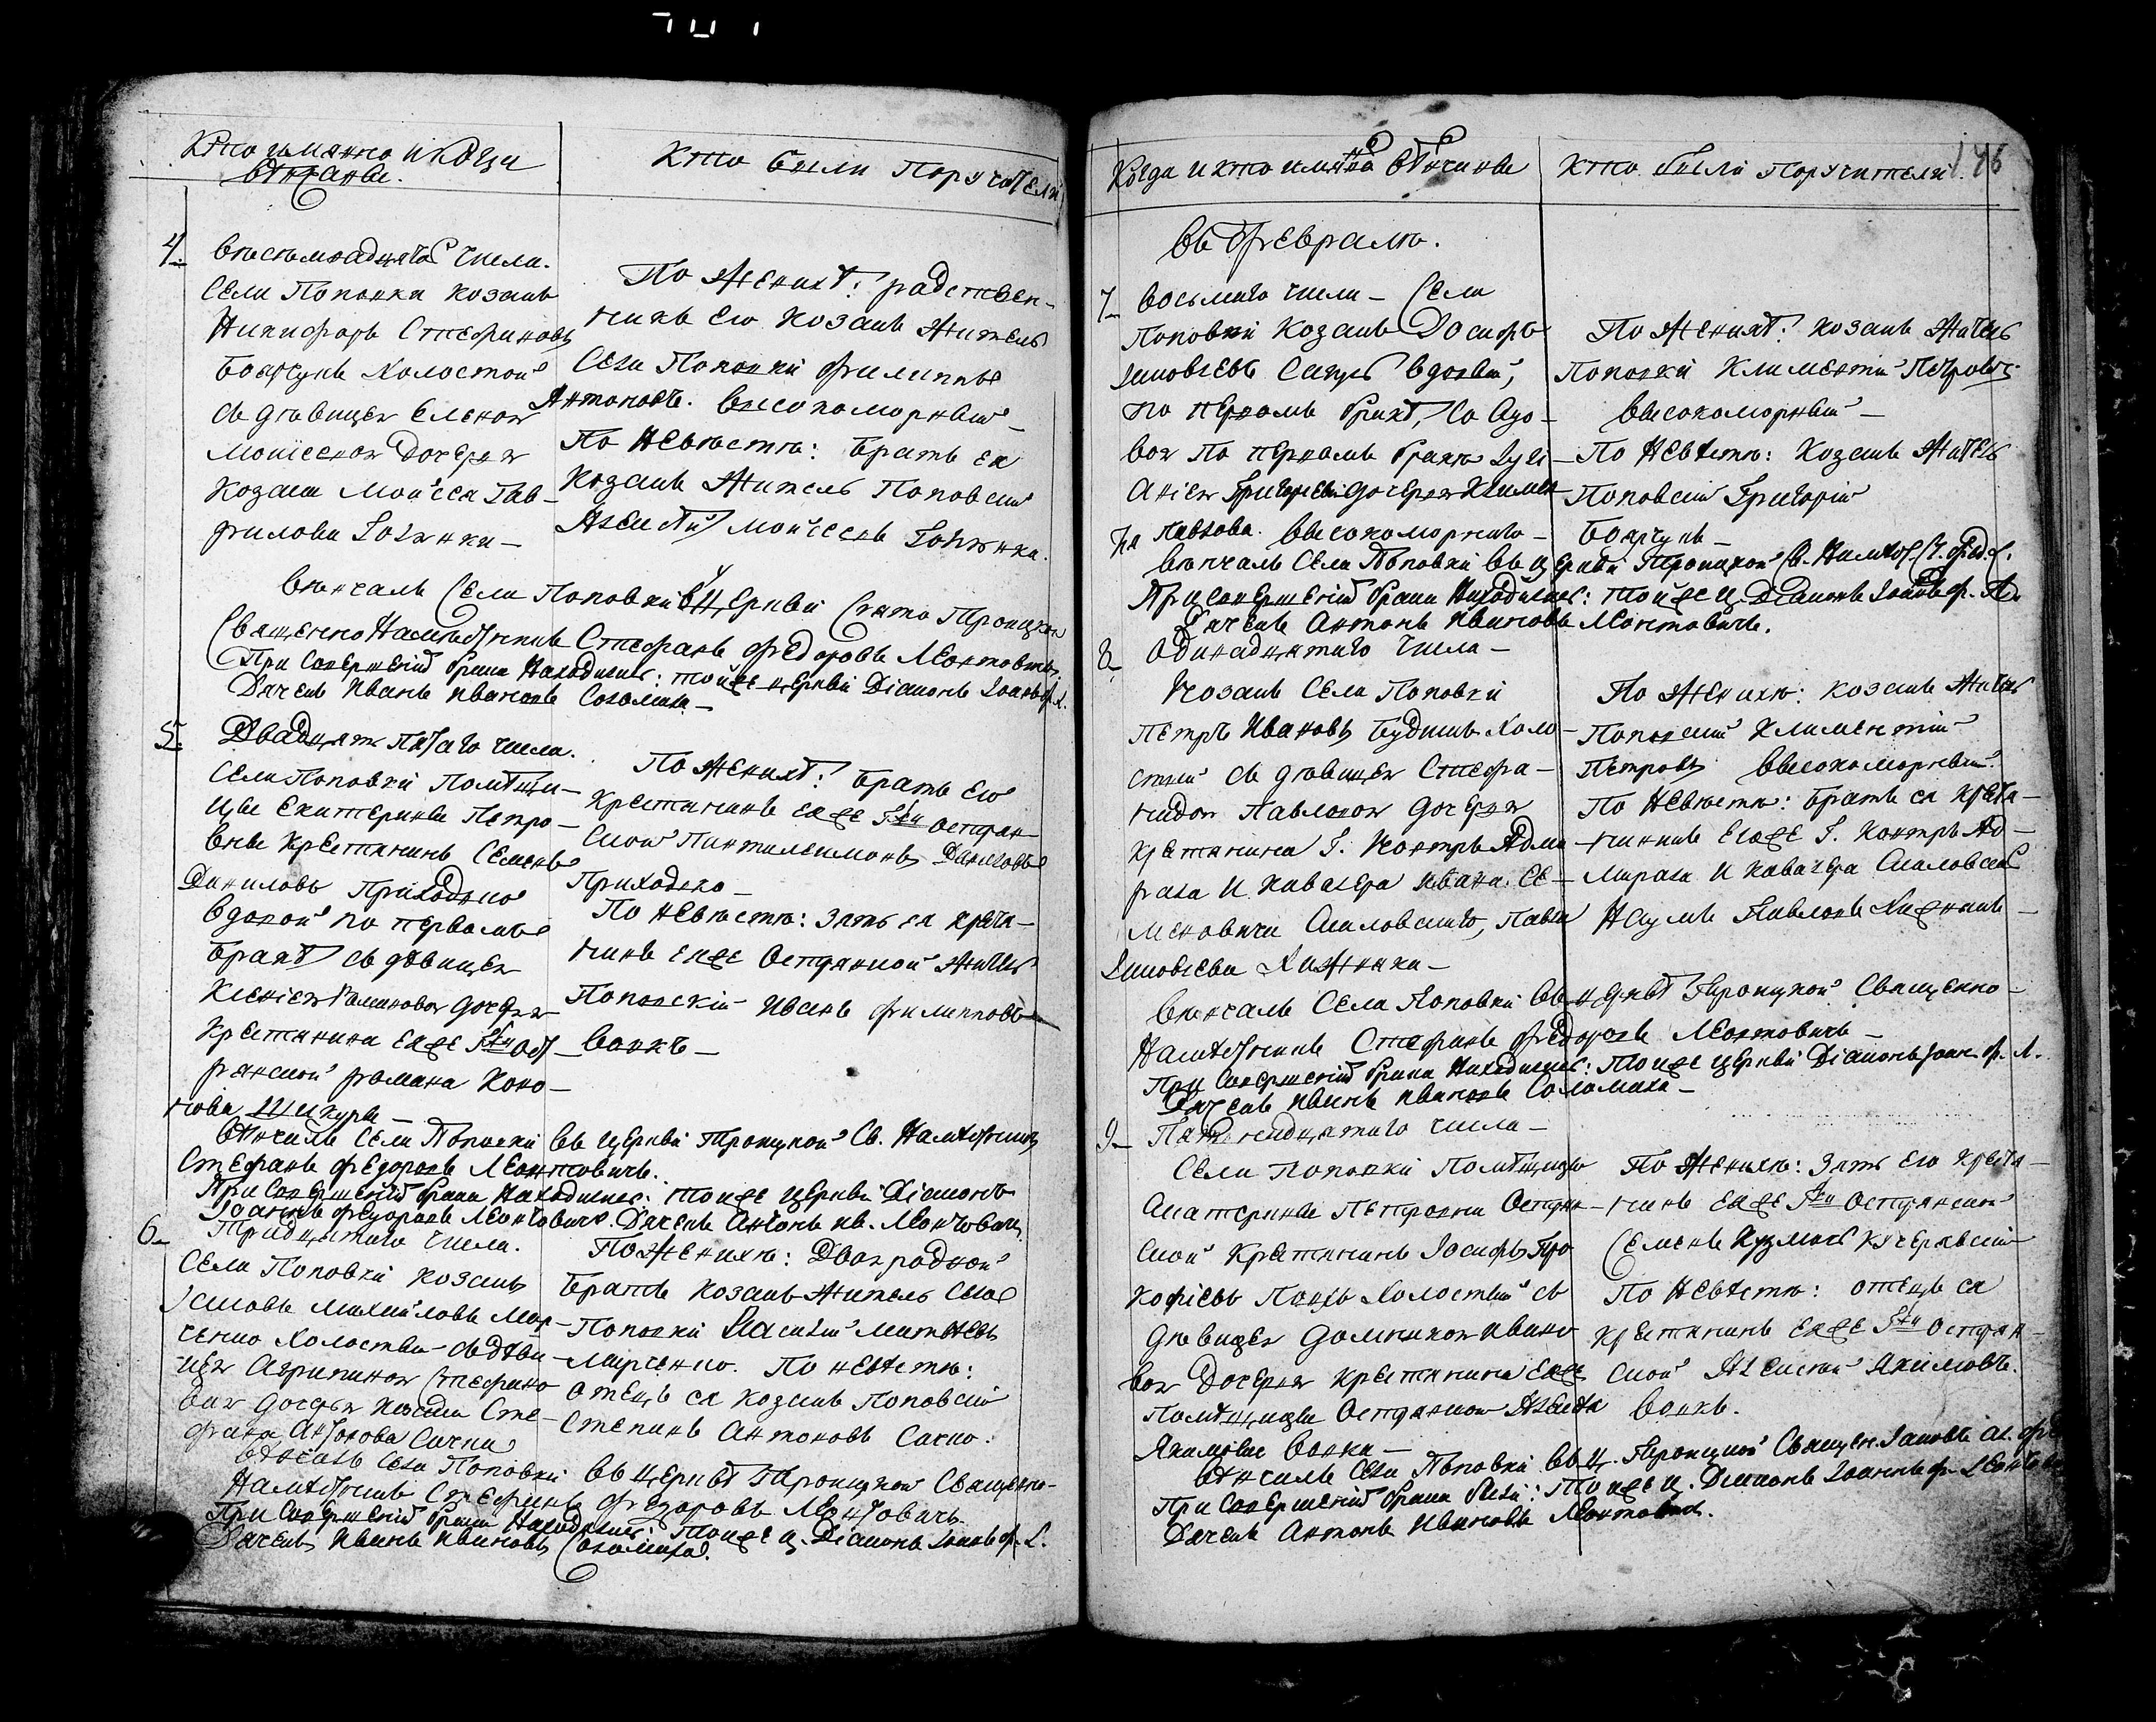 Кто имянно и когда
вѣнчаны.
Кто были Поручители
4. восемнадцать числа.
Села Поповки козакъ
Никифоръ Стефановъ
Боярчукъ Холостой
съ дѣвицею Еленою
Моисеевою дочерью
козака Моисея Гав-
рилова
По Женихѣ: радствен-
никъ его козакъ житель
Села Поповки Филиппъ
Антоновъ. Высокоморный
По Невѣстѣ: Братъ ея
козакъ житель Поповский
Алексѣй Моисеевъ
Вѣнчалъ Села Поповки въ Церкви Свято Троицкой
Священно Намѣстникъ Стефанъ Федоровъ Леонтовичъ.
При совершении брака находились: тойже церкви Діаконъ Іоаннъ ф. Л.
Дячекъ Иванъ Ивановъ Соломаха.
5. Двадцять Пятаго числа.
Села Поповки Помѣщи-
цы Екатерины Петро-
вны Крестянинъ Семенъ
Даниловъ Приходько
вдовой по первомъ
бракѣ съ дѣвицею
Ксеніею Романовою дочерью
Крестянина еяже Гжи Ост-
ранской Романа Коно-
нова
По Женихѣ: Братъ его
Крестянинъ еяже Гжи Остран-
ской Пантилеимонъ Даниловъ
Приходько
По Невѣстѣ: зять ея крестя-
нинъ еяже Остранской житель
Поповскій Иванъ Филипповъ
Волкъ
Вѣнчалъ Села Поповки въ Церкви Троицкой Св. Намѣстникъ
Стефанъ Федоровъ Леонтовичъ.
При совершении брака находились: тойже церкви Діаконъ
Іоаннъ Федоровъ Леонтовичъ. Дячекъ Антонъ Ив. Леонтовичъ.
6. Тридцятаго числа.
Села Поповки козакъ
Іаковъ Михайловъ Мар-
ченко Холостый съ дѣви-
цею Агрипиною Стефано-
вою дочерью козака Сте-
фана Антонова Сачка
По Женихѣ: Двоюродной
Братъ козакъ житель Села
Поповки Василий Матвѣевъ
Марченко. По невѣстѣ:
отецъ ея козакъ Поповский
Степанъ Антоновъ Сачко.
Вѣнчалъ Села Поповки въ Церквѣ Троицкой Священно-
Намѣстникъ Стефанъ Федоровъ Леонтовичъ
При совершении брака находились: тойже ц. Діаконъ Іоаннъ ф. Л.
Дячекъ Иванъ Ивановъ Соломаха.
Когда и кто имянно вѣнчаны
Кто были Поручители.
146
Въ Февралѣ.
7. восьмаго числа Села
Поповки козакъ Іосифъ
вдовый,
по первомъ бракѣ, со вдо-
вою по первомъ бракѣ
Григорьевою дочерью
Павлова. Высокоморнаго
По Женихѣ: козакъ житель
Поповки Климентій Петровъ
Высокоморный
По Невѣстѣ: козакъ житель
Поповский Григорій
Боярчукъ
Вѣнчалъ Села Поповки въ Церкви Троицкой Св. Намѣст. Ст. Фед. Л.
При совершении брака находились: тойже ц. Діаконъ Іоаннъ ф. Л.
Дячекъ Антонъ Ивановъ Леонтовичъ.
8. Одинадцятаго числа
Козакъ Села Поповки
Петръ Ивановъ Холо-
стый съ дѣвицею Стефа-
нидою Павловою дочерью
крестянина Г. Контръ Адми-
рала и кавалера Ивана Се-
меновича Скаловскаго, Павла
По Женихѣ: козакъ житель
Поповский Климентій
Петровъ Высокоморный.
По Невѣстѣ: братъ ея крестя-
нинъ егоже Г. Контръ Ад-
мирала и кавалера Скаловскаго
Наумъ Павловъ Хижнякъ
Вѣнчалъ Села Поповки въ церквѣ Троицкой Священно-
Намѣстникъ Стефанъ Федоровъ Леонтовичъ
При совершении брака находились: тойже церкви Діаконъ Іоан. ф. Л.
Дячекъ Иванъ Ивановъ Соломаха
9. Пятнадцятаго числа
Села Поповки Помѣщицы
Екатерины Петровны Остран-
ской Крестянинъ Іосифъ Про-
кофіевъ Холостый съ
дѣвицею Домникою
дочерью крестянина еяже
Помѣщицы Остранской Алексѣя
Якимова Волка
По Женихѣ: зять его крестя-
нинъ еяже Гжи Остранской
Семенъ Кузминъ Кучерявский
По Невѣстѣ: отецъ ея
крестянинъ еяже Гжи Остран-
ской Алексѣй Якимовъ.
Волкъ.
Вѣнчалъ Села Поповки въ ц. Троицкой Священ. Іаковъ
При совершении брака были: тойже ц. Діаконъ Іоаннъ ф. Леонтович
Дячекъ Антонъ Ивановъ Леонтовичъ.